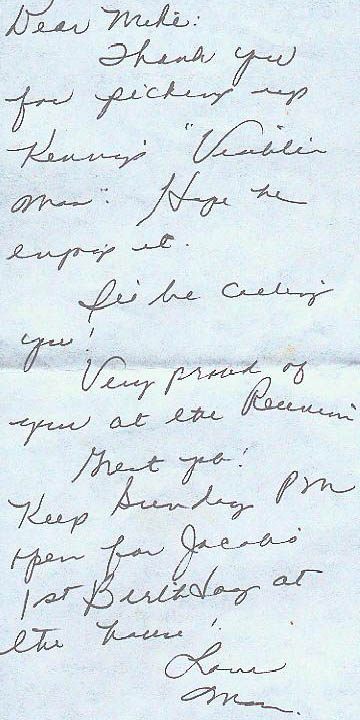 Dear Mike:
Thank you
for picking up
Kenny's "Visible
Man". Hope he
enjoys it.
I'll be calling
you!
Very proud of
you at the Reunion
Great job!
Keep Sunday PM
open for Jacob's
1st Birthday at
the house!
Love
Mom.